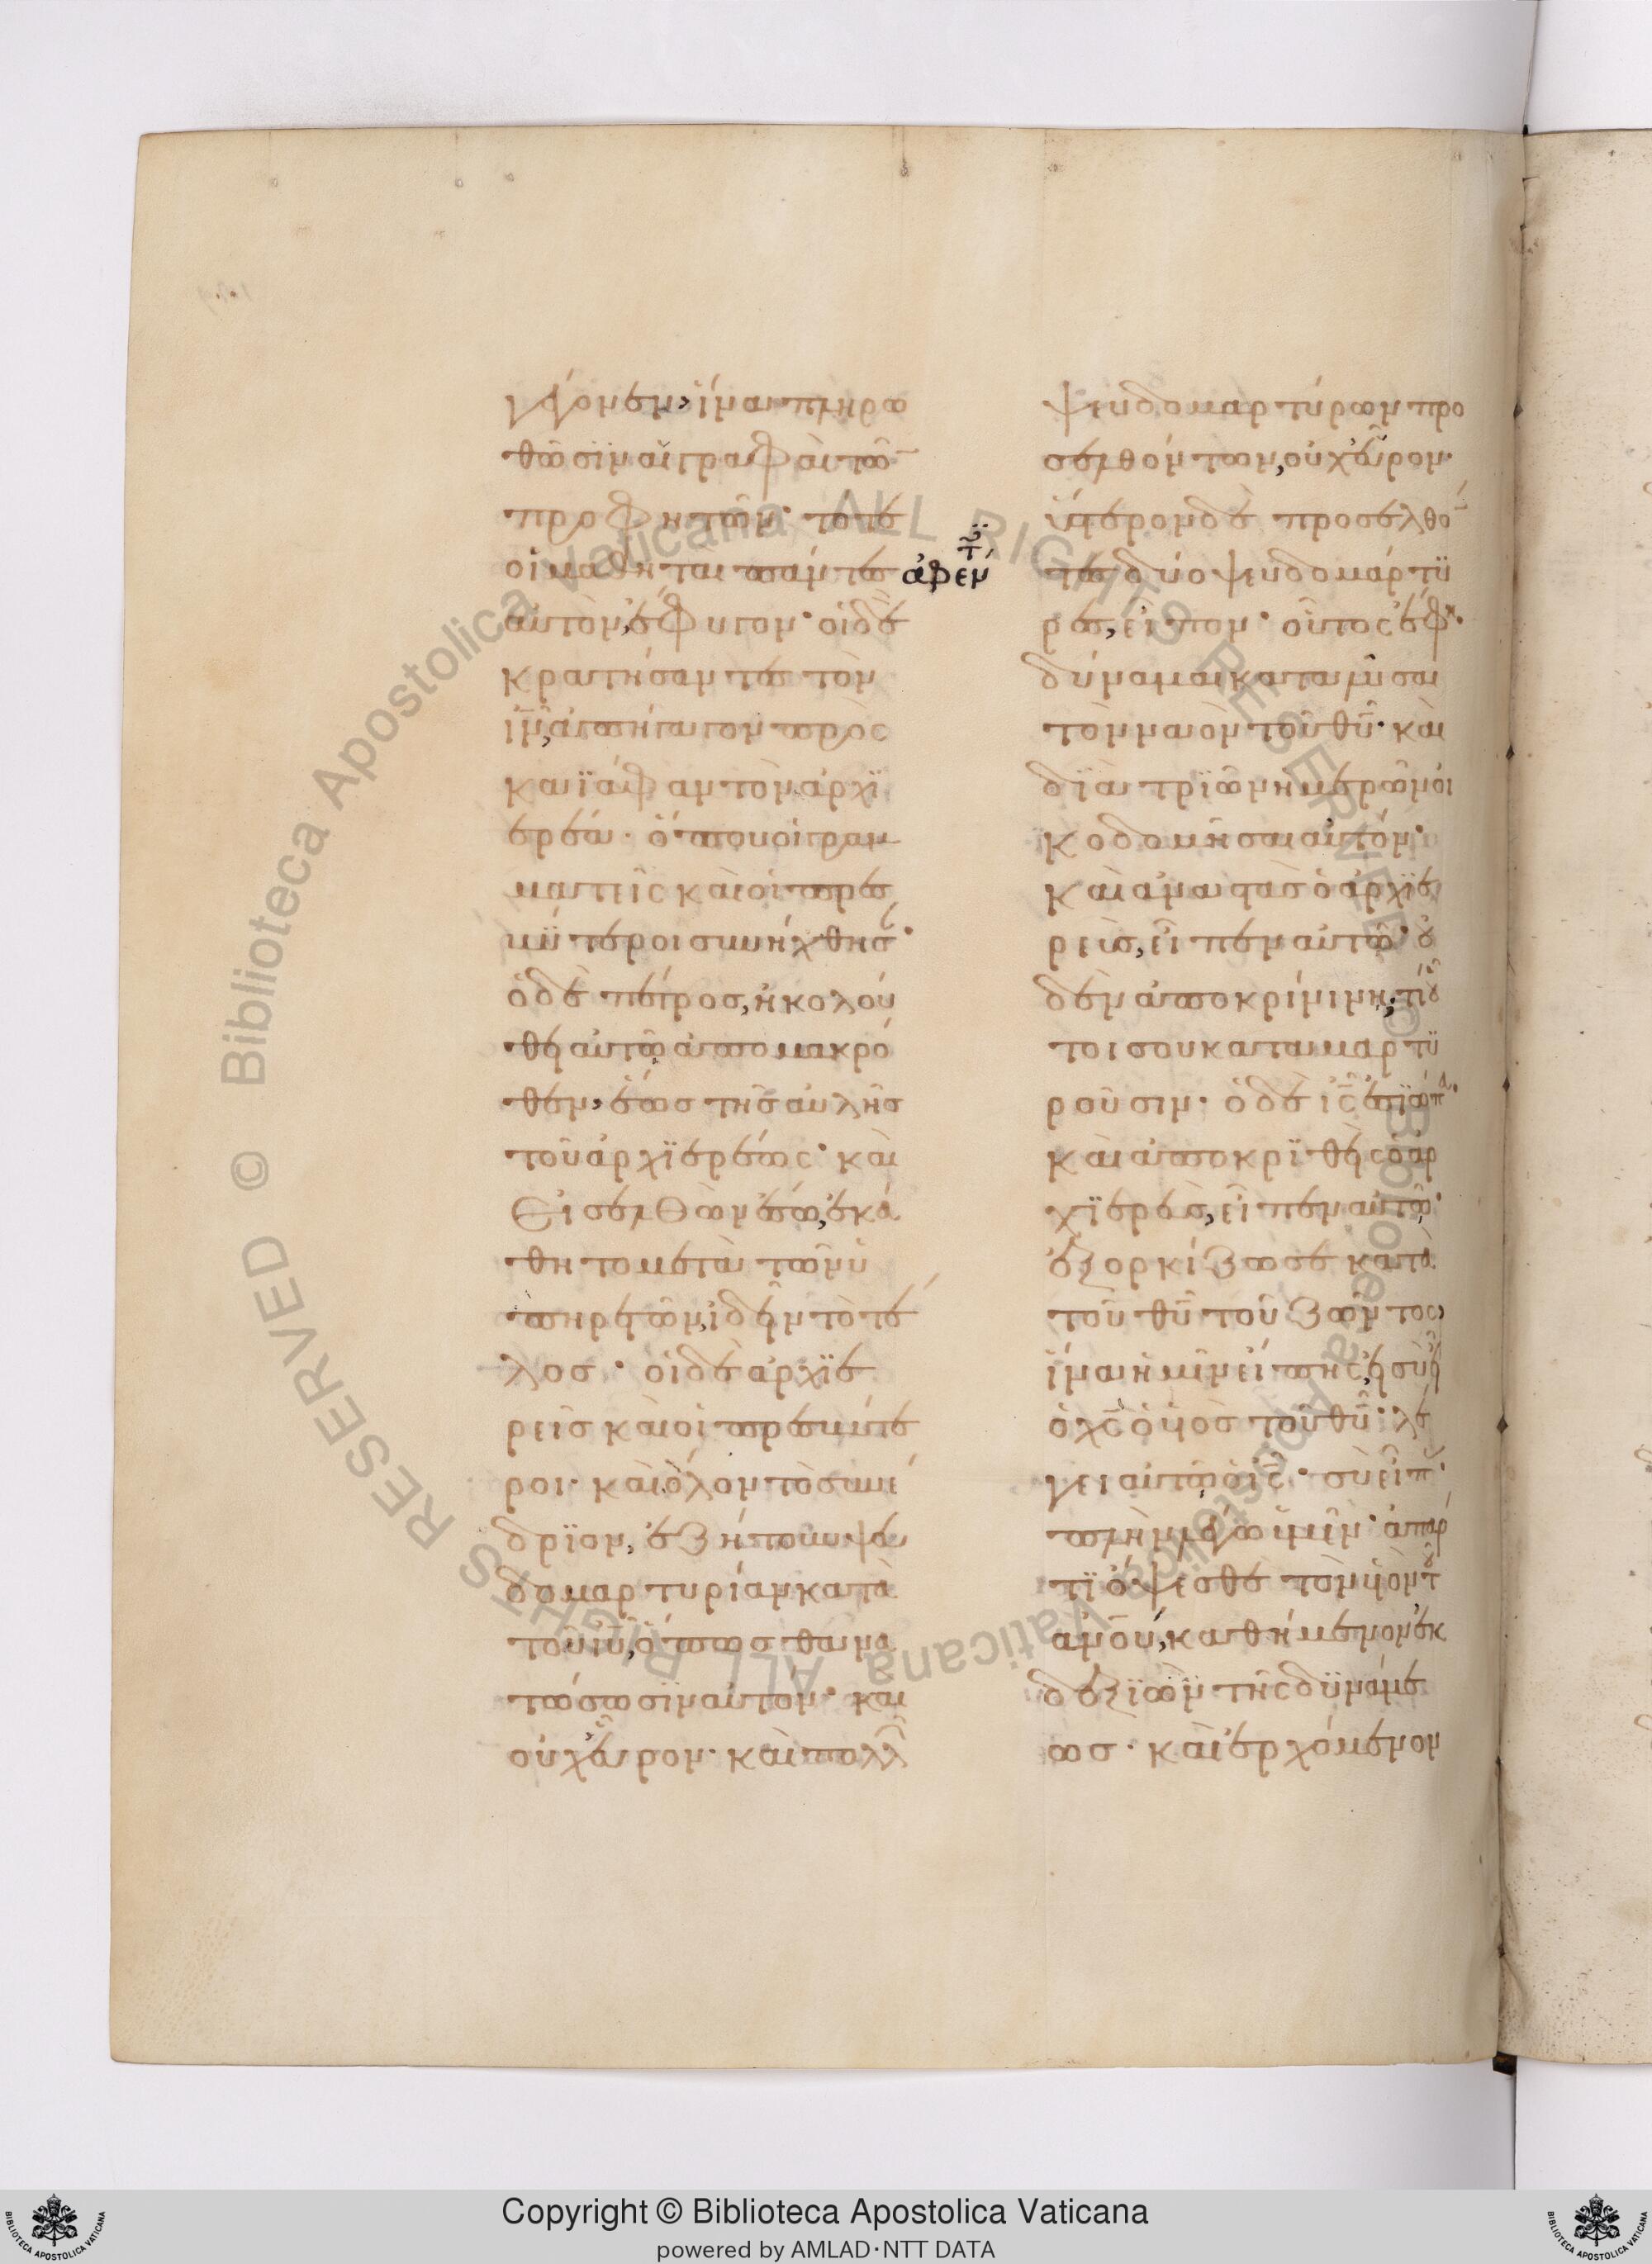 γέγονεν, ἵνα πληρω
θῶσϊν αἱ γραφαὶ τῶ̅
προφητῶν· τότε
οἱ μαθηταὶ πάντες ἀφέν
τ̈
αὐτὸν, ἔφυγον· οἱ δὲ
κρατήσαντες τὸν
ι̅ν̅, ἀπήγαγον πρὸς
καϊάφαν τὸν ἀρχϊ
ερέα· ὅπου οἱ γραμ
ματεῖς καὶ οἱ πρεσ
βϋτεροι συνήχθησ·
ὁ δὲ πέτροσ, ἠκολού
θη αὐτῷ ἀπο μακρό
θεν, ἕωσ τῆσ αὐλῆσ
τοῦ ἀρχϊερέως· καὶ
Εἰσελθὼν ἔσω, ἐκά
θητο μετὰ τῶν ὑ
πηρετῶν, ἰδεῖν τὸ τέ
λοσ· οἱ δὲ ἀρχϊε
ρεῖσ καὶ οἱ πρεσβύτε
ροι· καὶ ὅλον τὸ συνέ
δρϊον, ἐζήτουν ψευ
δομαρτυρίαν κατὰ
τοῦ ι̅υ̅, ὅπωσ θανα
τώσωσϊν αὐτόν· και
οὐχ εὗρον· καὶ πολλ
ψευδομαρτύρων προ
σελθόντων, οὐχ εὗρον·
ὕστερον δὲ προσελθό
τες δύο ψευδομάρτϋ
ρες, εἶπον· οὗτος ἔφη·
δύναμαι καταλῦσαι
τὸν ναὸν τοῦ θ̅υ̅· καὶ
δϊὰ τρϊῶν ἡμερῶν οἰ
κοδομῆσαι αὐτόν·
καὶ ἀναστὰσ ὁ ἀρχϊε
ρεὺσ, εἶπεν αὐτῷ· ȣ
δὲν ἀποκρίνη, τί ȣ
τοι σου καταμαρτϋ
ροῦσιν· ὁ δὲ ι̅ς̅ ἐσϊώπα·
καὶ ἀποκρϊθεὶς ὁ ἀρ
χϊερεὺσ, εἶπεν αὐτῷ·
ἐξορκίζω σε κατὰ
τοῦ θ̅υ̅ τοῦ ζῶντος
ἵνα ἡμῖν εἴπης, εἰ σὺ εἶ
ὁ χ̅ς̅ ὁ ὑὸσ τοῦ θ̅υ̅· λέ
γει αὐτῷ ὁ ι̅ς̅· σὺ εἶπ·
πλὴν λέγω ὑμῖν· ἀπάρ
τϊ ὄψεσθε τὸν ὑὸν τȣ
α̅ν̅ο̅υ̅, καθήμενον ἐκ
δεξϊῶν τῆς δϋνάμε
ωσ· καὶ ἐρχόμενον